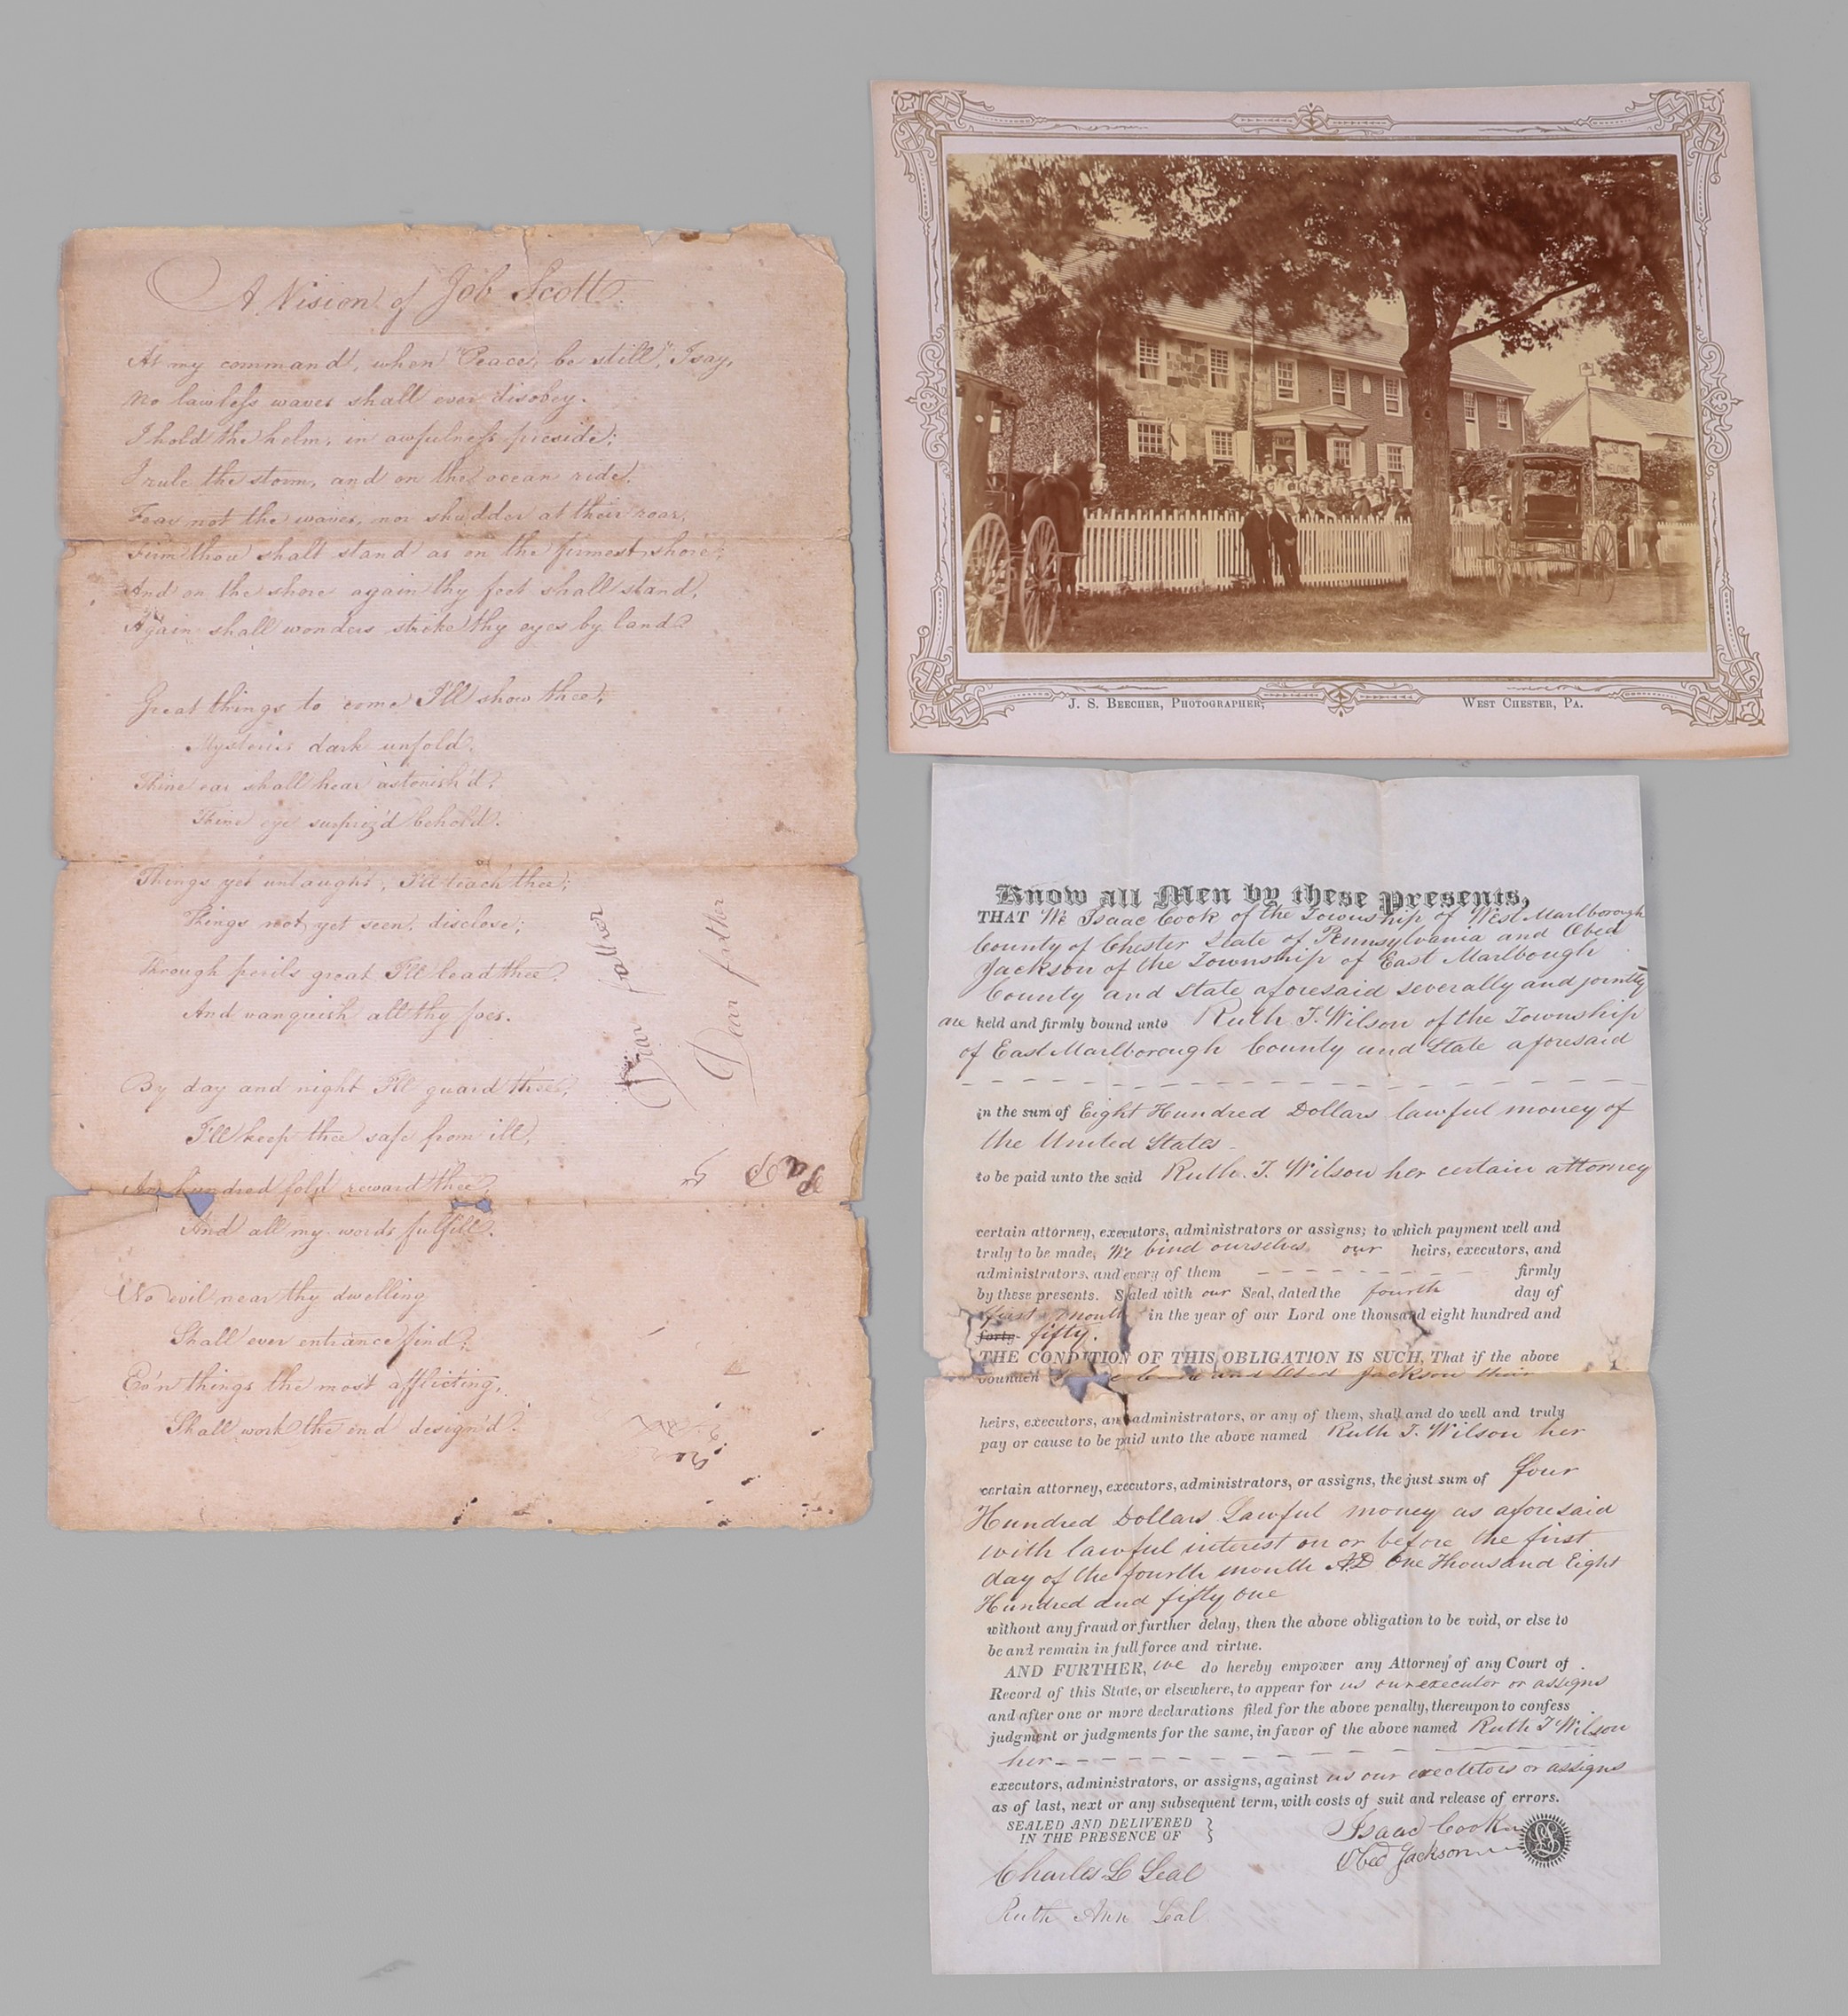 A Vision of Job Scott.
At my command, when "Peace, be still," I say,
No lawless waves shall ever disobey.
I hold the helm, in awfulness preside;
I rule the storm, and on the ocean ride.
Fear not the waves, nor shudder at their roar,
Firm thou shalt stand as on the firmest shore;
And on the shore again thy feet shall stand,
Again shall wonders strike thy eyes by land.
Great things to come I'll show thee,
Mysteries dark unfold.
Thine ear shall hear astonish'd,
Thine eye surpriz'd behold.
Things yet untaught, I'll teach thee;
Things not yet seen, disclose;
Through perils great I'll lead thee,
And vanquish all thy foes.
By day and night I'll guard thee,
I'll keep thee safe from ill,
An hundred fold reward thee,
And all my words fulfill.
No evil near thy dwelling
Shall ever entrance find;
Ev'n things the most afflicting,
Shall work the end design'd.
Dear father
Dear father
J. S. Beecher, Photographer,
West Chester, Pa.
Know all Men by these presents,
THAT We Isaac Cook of the Township of West Marlborough
County of Chester State of Pennsylvania and Obed
Jackson of the Township of East Marlbough
County and State aforesaid severally and jointly
are held and firmly bound unto Ruth T. Wilson of the Township
of East Marlborough County and State aforesaid
in the sum of Eight Hundred Dollars lawful money of
the United States
to be paid unto the said Ruth. T. Wilson her certain attorney
certain attorney, executors, administrators or assigns; to which payment well and
truly to be made, We bind ourselves our heirs, executors, and
administrators, and every of them firmly
by these presents. Sealed with our Seal, dated the fourth day of
first month in the year of our Lord one thousand eight hundred and
forty fifty.
THE CONDITION OF THIS OBLIGATION IS SUCH, That if the above
bounden and Obed Jackson their
heirs, executors, and administrators, or any of them, shall and do well and truly
pay or cause to be paid unto the above named Ruth T. Wilson her
certain attorney, executors, administrators, or assigns, the just sum of four
Hundred Dollars Lawful money as aforesaid
with lawful interest on or before the first
day of the fourth month AD One Thousand Eight
Hundred and fifty one
without any fraud or further delay, then the above obligation to be void, or else to
be and remain in full force and virtue.
AND FURTHER, we do hereby empower any Attorney of any Court of
Record of this State, or elsewhere, to appear for us our executor or assigns
and after one or more declarations filed for the above penalty, thereupon to confess
judgment or judgments for the same, in favor of the above named Ruth T Wilson
her
executors, administrators, or assigns, against us our exectetors or assigns
as of last, next or any subsequent term, with costs of suit and release of errors.
SEALED AND DELIVERED
IN THE PRESENCE OF
Isaac Cook
Obed Jackson
LS
Charles L Seal
Ruth Ann Seal